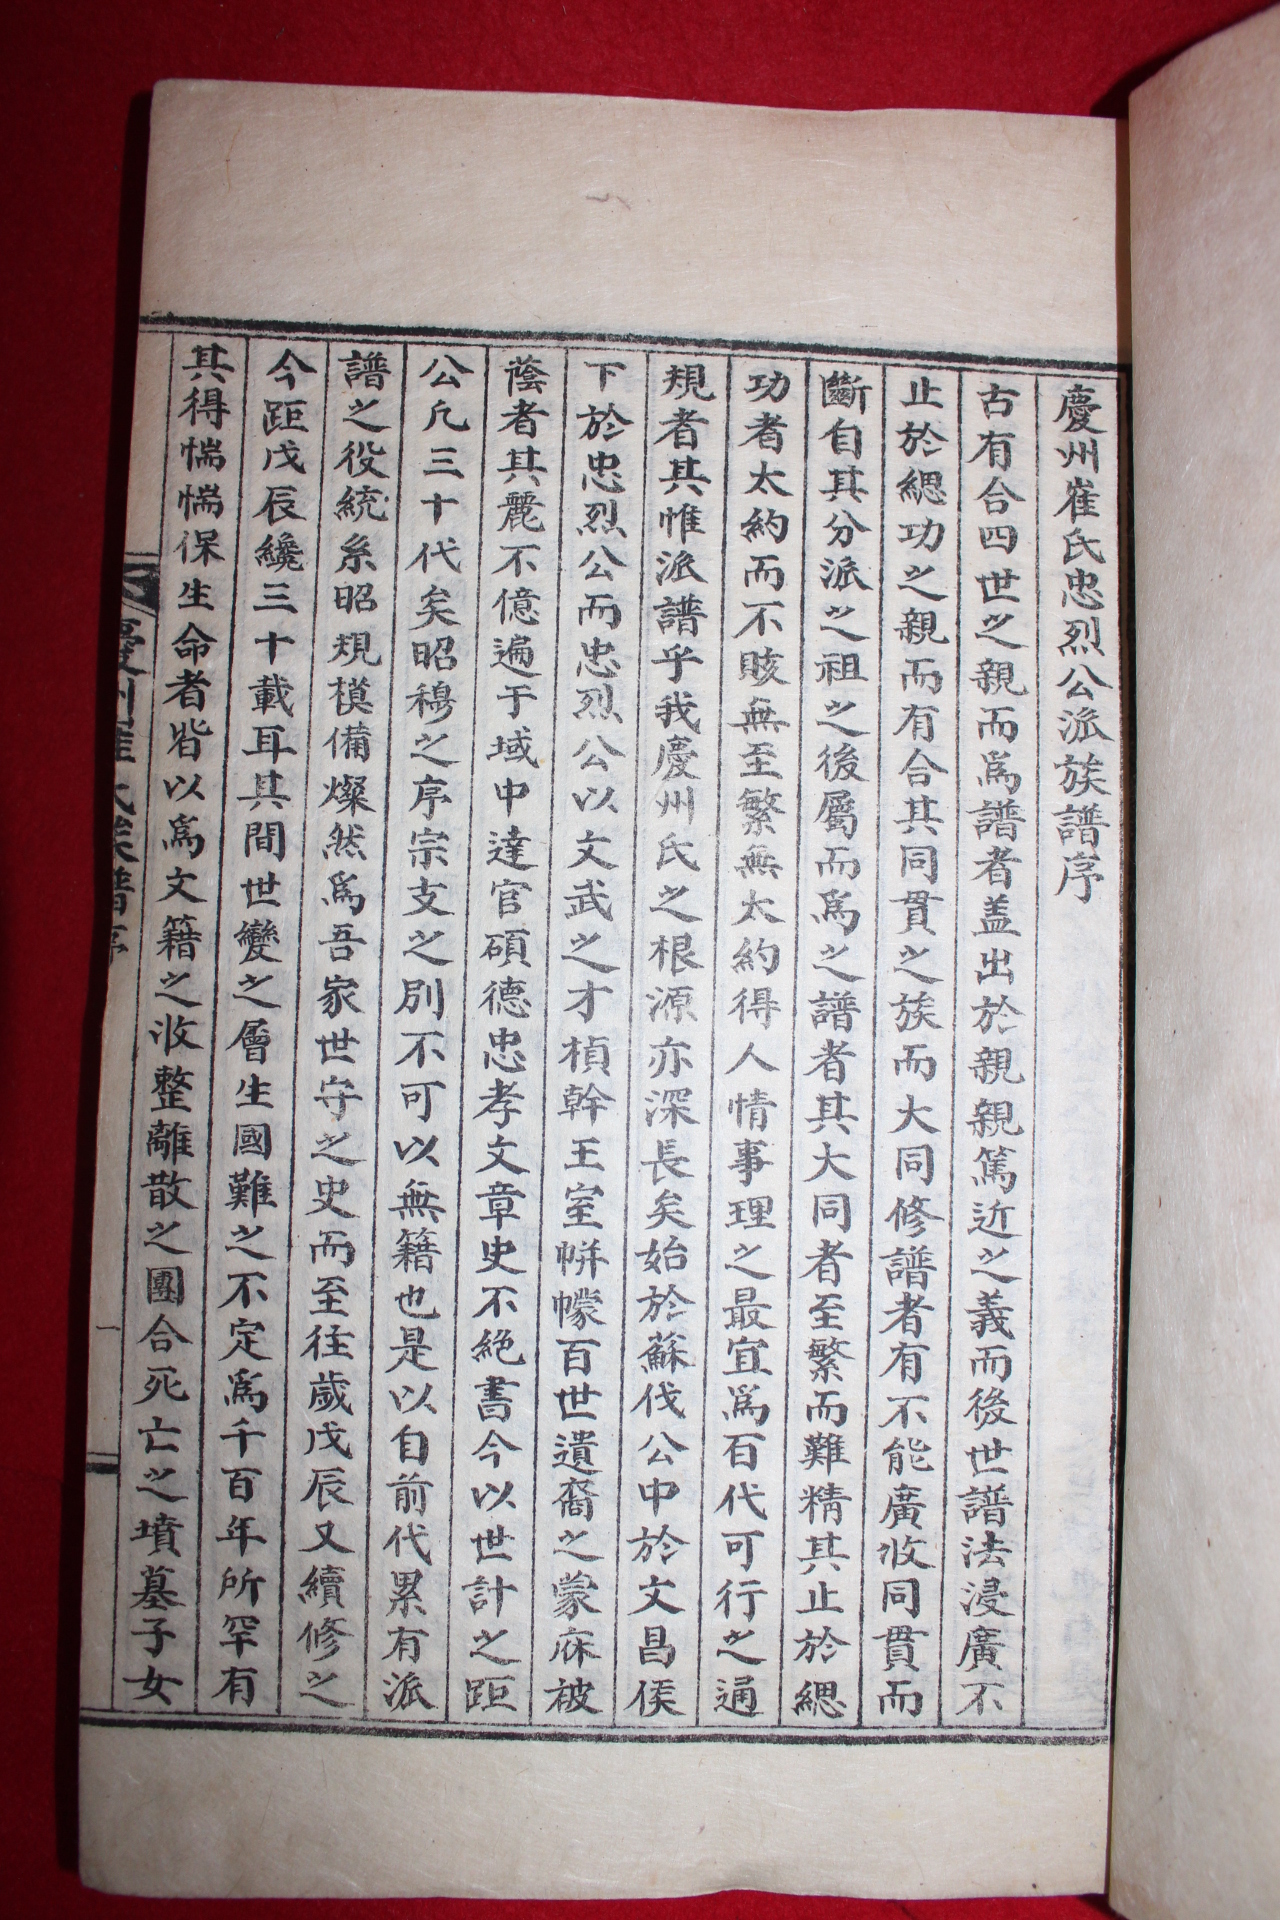 慶州崔氏忠烈公派族譜序
古有合四世之親而爲譜者盖出於親親篤近之義而後世譜法浸廣不
止於緦功之親而有合其同貫之族而大同修譜者有不能廣收同貫而
斷自其分派之祖之後屬而爲之譜者其大同者至繁而難精其止於緦
功者太約而不賅無至繁無太約得人情事理之最宜爲百代可行之通
規者其惟派譜乎我慶州氏之根源亦深長矣始於蘇伐公中於文昌侯
下於忠烈公而忠烈公以文武之才楨幹王室帡幪百世遺裔之蒙庥被
蔭者其麗不億遍于域中達官碩德忠孝文章史不絕書今以世計之距
公凡三十代矣昭穆之序宗支之別不可以無籍也是以自前代累有派
譜之役統系昭規模備燦然爲吾家世守之史而至往歲戊辰又續修之
今距戊辰纔三十載耳其間世變之層生國難之不定爲千百年所罕有
其得惴惴保生命者皆以爲文籍之收整離散之團合死亡之墳墓子女
慶州崔氏族譜序
一